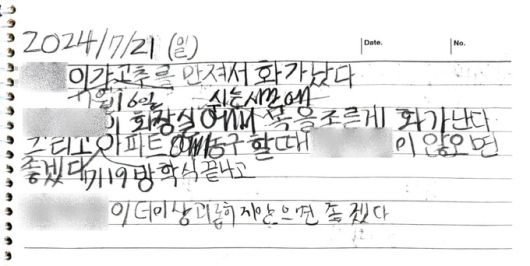 2024/7/21 (일)
Date. No.
이가 고추를 만져서 화가 났다
7월16일 쉬는시간에
이 화장실에서 목을조른게 화가난다
그리고 아파트에서 농구 할때 이 않오면
좋겠다 7/19 방학식 끝나고
이 더이상 괴롭히지안으면 좋겠다